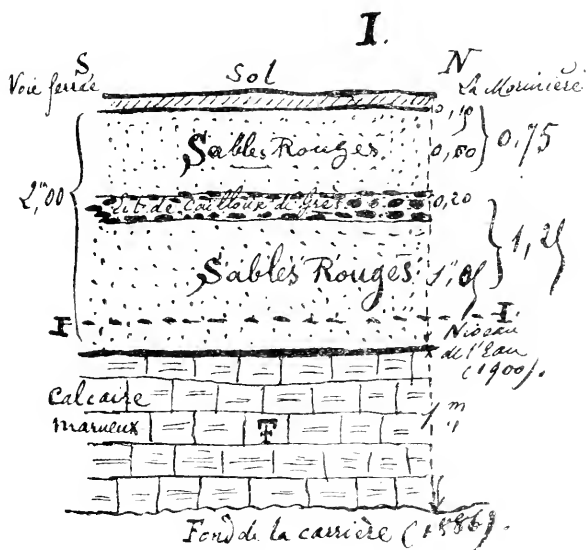 I.
S Sol N
Voie ferrée La Morinière
0,10
Sables Rouges 0,60 0,75
2,m00
Lit de Cailloux de Grès 0,20
1,25
Sables Rouges 1m,05
I I
Niveau
de l'Eau
(1900).
Calcaire
marneux T 1,m
Fond de la carrière (1886).